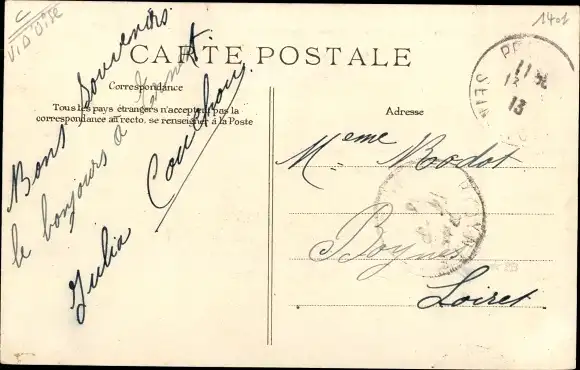 C
VID'OISE
1401
CARTE POSTALE
Correspondance
Tous les pays étrangers n'acceptent pas la
correspondance au recto, se renseigner à la Poste
Bons Souvenirs
le bonjours a Ernest
Julia Couchou
Adresse
Meme Bodot
Boynes
Loiret
13